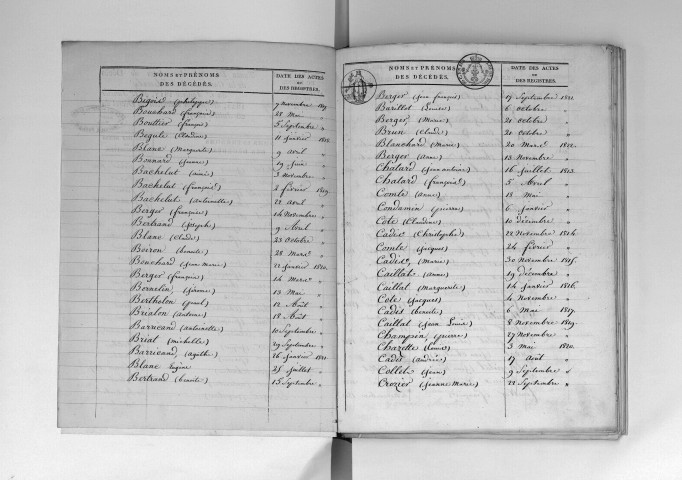 NOMS ET PRÉNOMS
DES DÉCÉDÉS.
DATE DES ACTES
OU
DES REGISTRES.
Bégois (philippe) 7 Novembre
Bouchard (françois) 28 Mai "
Bouttier (françois) 5 Septembre "
Begule (Claudine) 11 janvier
Blanc (Marguerite) 9 avril "
Bonnard 19 Juin "
Bachelut (aimée) 3 Novembre "
Bachelut (françois) 2 février 1819.
Bachelut (antoinette) 22 avril "
Berger (françoise) 14 Novembre "
Bertrand (joseph) 9 Avril "
Blanc (Claude) 23 Octobre "
Boiron (benoite) 28 Mars "
Bouchard (jean marie) 22 janvier 1820.
Berger (françois) 14 Mars "
Bernelin (jérôme) 13 Mai "
Berthelon 12 Août "
Brialon (antoine) 18 Août "
Barricand (antoinette) 10 Septembre "
Brial (michelle) 29 Septembre "
Barricand (agathe) 16 janvier 1821.
Blanc 25 juillet "
Bertrand (benoite) 15 Septembre "
NOMS ET PRÉNOMS
DES DÉCÉDÉS.
DATE DES ACTES
OU
DES REGISTRES.
Berger (jean françois) 19 Septembre
Burillot (Louise) 6 octobre "
Berger (Marie) 21 octobre "
Brun (Claude) 21 octobre "
Blanchard (Marie) 20 Mars 1822.
Berger (anne) 13 Novembre "
Chatard (jean antoine) 16 juillet 1813.
Chatard (françois) 5 Avril "
Comte (anne) 18 Mai "
Condamin (pierre) 6 janvier "
Côte (Claudine) 10 décembre "
Cadis (Christophe) 22 Novembre 1814.
Comte (jacques) 24 février "
Cadis, (Marie) 30 Novembre 1815.
Caillat (anne) 19 décembre "
Caillat (Marguerite) 14 janvier 1816.
Cote (jacques) 4 Novembre "
Cadet (benoite) 6 Mai 1817.
Caillat (jean Louis) 8 Novembre 1819.
Champin (pierre) 27 Novembre "
Chazette 3 Mai 1820.
Cadet (andrée) 17 Août "
Collet (jean) 9 Septembre "
Crozier (jeanne Marie) 22 Septembre "